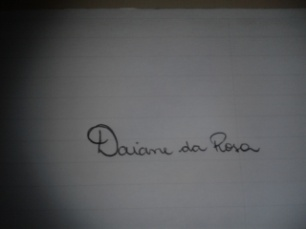 Daiane da Rosa